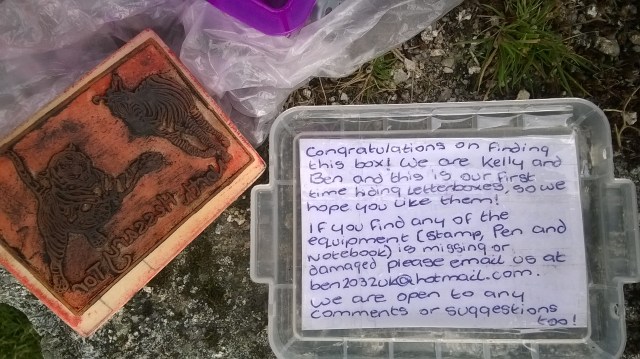 Congratulations on finding
this box! We are Kelly and
Ben and this is our first
time hiding Letterboxes, so we
hope you like them!
If you find any of the
equipment (stamp, Pen and
Notebook) is missing or
damaged please email us at
ben2032uk@hotmail.com.
We are open to any
comments or suggestions
too!